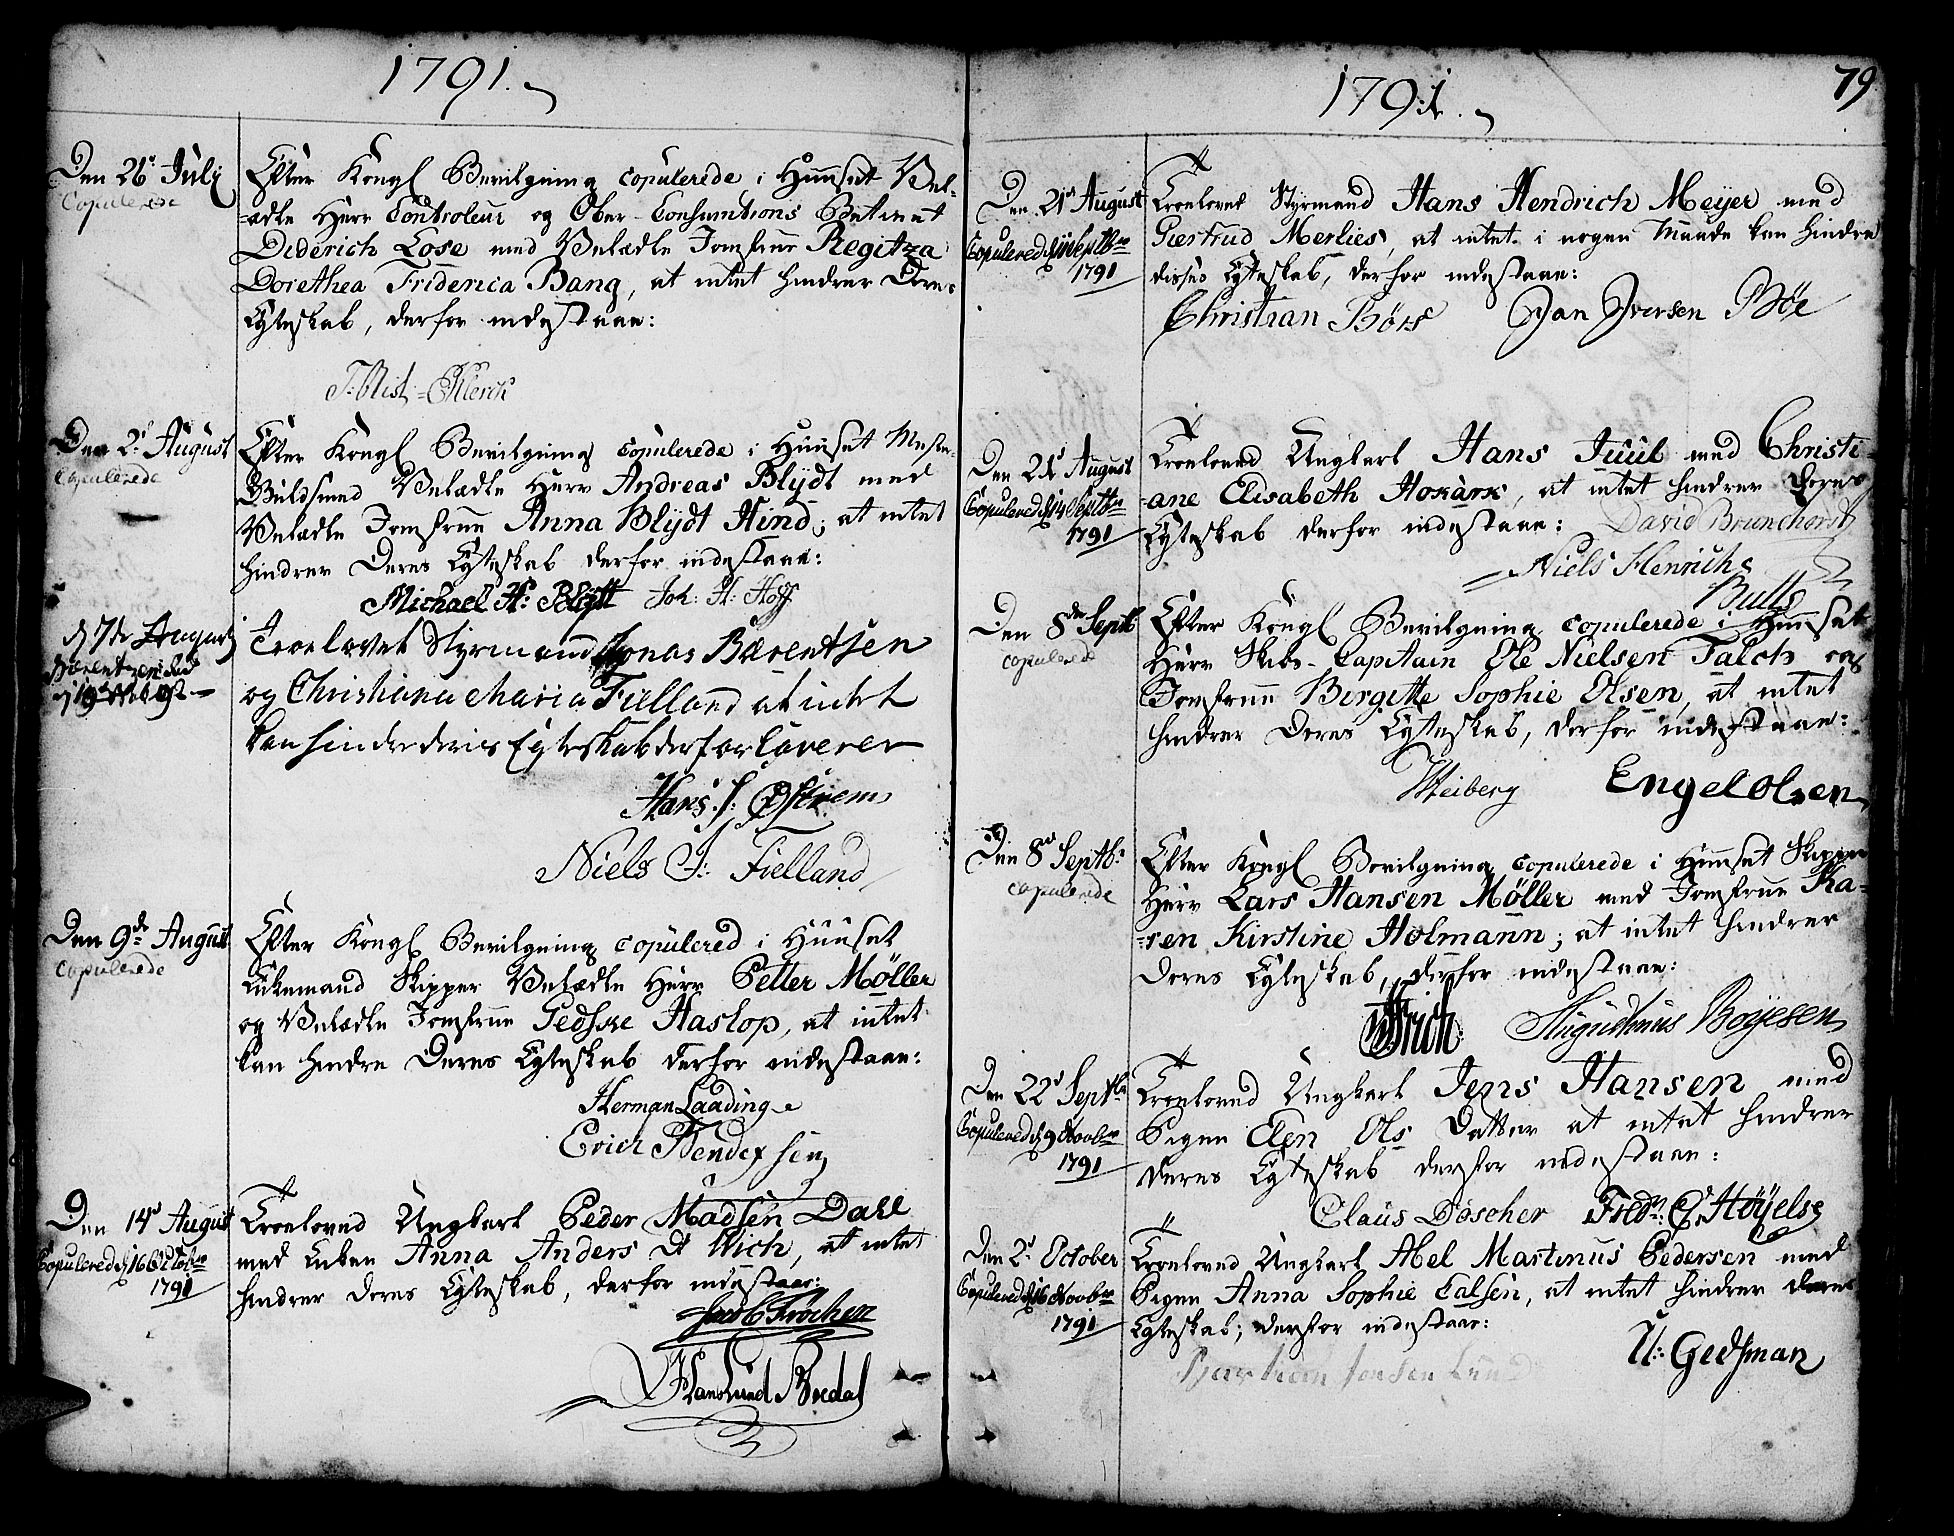 1791.
Den 26de Julij
Copulerede
Efter Kongl Bevilgning copulerede i Huuset Vel-
ædle Herr Controleur og Ober-Consumtions Betient
Diderich Lose med Velædle Jomfrue Regitza
Dorethea Friderica Bang, at intet hindrer Deres
Egteskab, derfor indestaae:
Den 2d August
Copulerede
Efter Kongl Bevilgning copulerede i Huuset
Velædle Herr Andreas Blÿdt med
Velædle Jomfrue Anna Blÿdt Hind; at intet
hindrer Deres Egteskab derfor indestaae:
Michael H: Blÿtt Joh: H: Hoff
d 7de August
Troelovet Styrmand Jonas Bærentsen
og Christiana Maria Fielland at intet
kan hindre deris Egteskab derfor Caverer
Hans J: Østrem
Niels J: Fielland
Den 9de August
copulerede
Efter Kongl Bevilgning copulered i Huuset
Enkemand Skipper Velædle Herr Petter Møller
og Velædle Jomfrue Gedske Haslop, at intet
kan hindre Deres Egteskab derfor indestaae:
Herman Laading
Erich Bendixsen
Den 14d August
Copulered d 16 Octobr
1791
Troeloved Ungkarl Peder Madsen Dahl
med Enken Anna Anders D Wich, at intet
hindrer deres Egteskab, derfor indestaae:
Jacob Frochen
Hans Lind Bredal
1791.
79
Den 21de August
Copulered d 11 Septbr
1791
Troelovet Styrmand Hans Hendrich Meÿer med
Giertrud Merlies, at intet i nogen Maade kan hindre
disses Egteskab, derfor indestaae:
Christian Børs Jan Iversen Bøe
Den 21d August
Copulered d 14 Septbr
1791
Troeloved Ungkarl Hans Juul med Christi-
ane Elisabeth, at intet hindrer deres
Egteskab derfor indestaae: David Brunchorst
Niels Henrichs
Bull
Den 8de Septb
copulerede
Efter Kongl Bevilgning copulerede i Huuset
Herr Skibs-Capitain Ole Nielsen Falch og
Jomfrue Birgitte Sophie Olsen, at intet
hindrer Deres Egteskab, derfor indestaae:
Heiberg Engel Olsen
Den 8d Septb:
copulerede
Efter Kongl Bevilgning copulerede i Huuset Skipper
Herr Lars Hansen Møller med Jomfrue Ka-
ren Kirstine Holmann; at intet hindrer
deres Egteskab, derfor indestaae:
Augustinus Boÿesen
Den 22d Septbr
Copulered d 9 Novbr
1791
Troeloved Ungkarl Jens Hansen med
Pigen Elen Ols Datter at intet hindrer
deres Egteskab derfor indestaae:
Claus Döscher Fridr: C: Höÿelse
Den 2d October
Copulered d 16 Novbr
1791
Troeloved Ungkarl Abel Martinus Pedersen med
Pigen Anna Sophie Calsen, at intet hindrer deres
Egteskab; derfor indestaae:
U: Gedsman
Jensen Lund